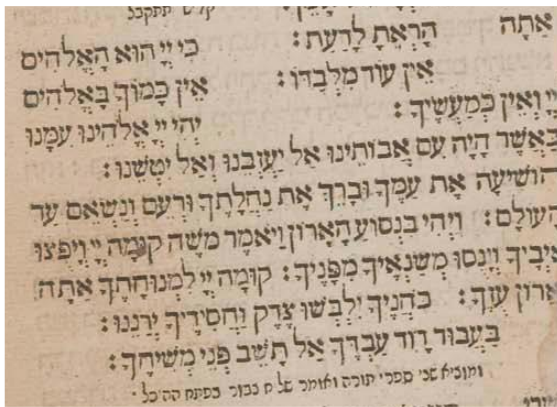 אַתָּה הָרְאֵתָ לָדַעַת : כִּי יְיָ הוּא הָאֱלֹהִים
אֵין עוֹד מִלְבַדּוֹ : אֵין כָּמוֹךָ בָּאֱלֹהִים
יְיָ וְאֵין כְּמַעֲשֶׂיךָ : יְהִי יְיָ אֱלֹהֵינוּ עִמָּנוּ
כַּאֲשֶׁר הָיָה עִם אֲבוֹתֵינוּ אַל יַעַזְבֵנוּ וְאַל יִטְּשֵׁנוּ :
הוֹשִׁיעָה אֶת עַמֶּךָ וּבָרֵךְ אֶת נַחֲלָתֶךָ וּרְעֵם וְנַשְּׂאֵם עַד
הָעוֹלָם : וַיְהִי בִּנְסוֹעַ הָאָרוֹן וַיֹּאמֶר מֹשֶׁה קוּמָה יְיָ וְיָפֻצוּ
אֹיְבֶיךָ וְיָנֻסוּ מְשַׂנְאֶיךָ מִפָּנֶיךָ : קוּמָה יְיָ לִמְנוּחָתֶךָ אַתָּה
וַאֲרוֹן עֻזֶּךָ : כֹּהֲנֶיךָ יִלְבְּשׁוּ צֶדֶק וַחֲסִידֶיךָ יְרַנֵּנוּ :
בַּעֲבוּר דָּוִד עַבְדֶּךָ אַל תָּשֵׁב פְּנֵי מְשִׁיחֶךָ :
ומוציא שני ספרי תורה ואומר